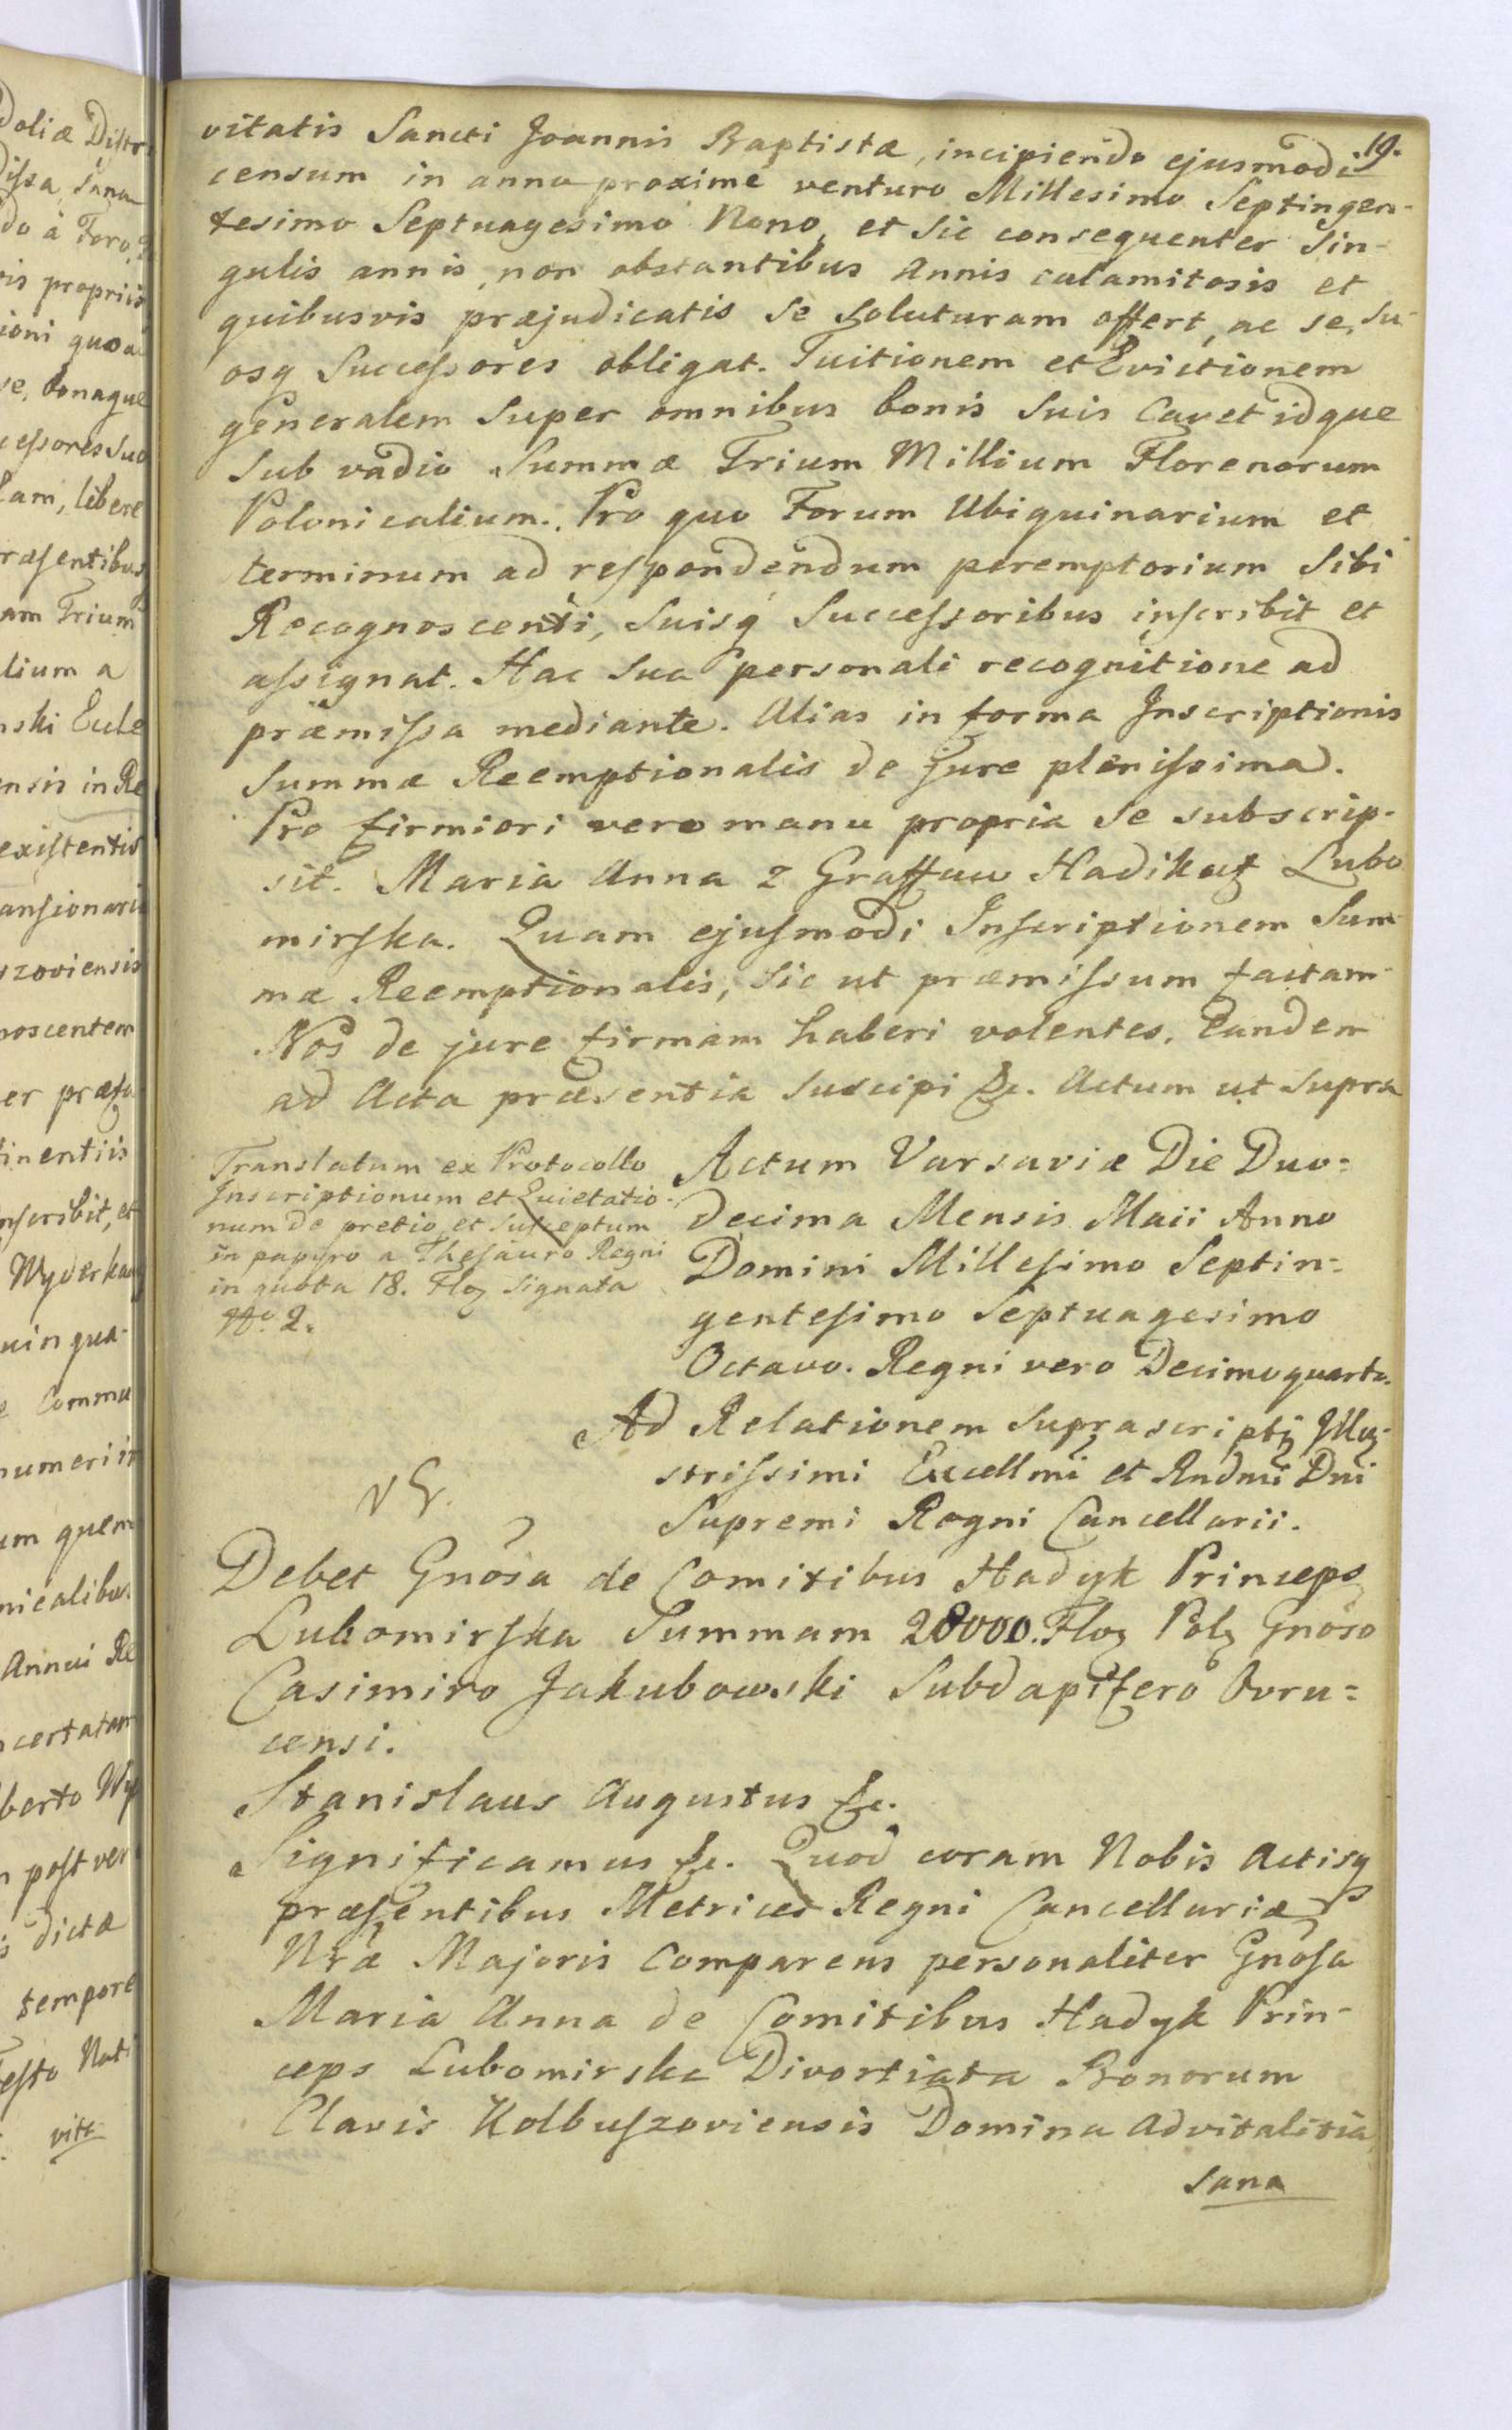 19.
vitatis Sancti Joannis Baptistæ, incipiendo ejusmodi
censum in anno proxime venturo Millesimo Septingen-
tesimo Septuagesimo Nono, et sic consequenter Sin-
gulis annis, non obstantibus Annis calamitosis et
quibusvis præjudicatis se soluturam offert, ac se, su-
osq Succeſsores obligat. Tuitionem et Evictionem
generalem super omnibus bonis suis Cavet idque
sub vadio Summæ Trium Millium Florenorum
Polonicalium. Pro quo Forum Ubiquinarium et
terminum ad reſpondendum peremptorium Sibi
Recognoscenti, Suisq Succeſsoribus inſcribit et
aſsignat. Hac Sua personali recognitione ad
præmiſsa mediante. Alias in forma Inscriptionis
Summæ Reemptionalis de jure pleniſsima.
Pro firmiori vero manu propria se subscrip-
sit. Maria Anna z Graffow Hadikow Lubo
mirſka. Quam ejuſmodi Inſcriptionem Sum-
mæ Reemptionalis, Sic ut præmiſsum factam
Nos de jure firmam haberi volentes, Eandem
ad Acta præsentia suscipi &c. Actum ut supra
Translatum ex Protocollo
Inscriptionum et Quietatio-
num de pretio et susceptum
in papyro a Theſauro Regni
in quota 18. Flor Signata
No. 2.
Actum Varsaviæ Die Duo=
decima Mensis Maii Anno
Domini Milleſimo Septin=
genteſimo Septuagesimo
Octavo. Regni vero Decimoquarto.
Ad Relationem Suprascripti Illu-
striſsimi Excellmi et Rndmi Dni
Supremi Regni Cancellarii.
Debet Gnosa de Comitibus Hadyk Princeps
Lubomirſka Summam 28000. Flor Pol Gnoso
Casimiro Jakubowski Subdapifero Ovru=
censi.
Stanislaus Augustus &c.
Significamus &c. Quod coram Nobis Actisq
præſentibus Metrices Regni Cancellariæ
Nræ Majoris Comparens personaliter Gnoſa
Maria Anna de Comitibus Hadyk Prin-
ceps Lubomirska Divortiata Bonorum
Clavis Kolbuſzoviensis Domina Advitalitia
sana